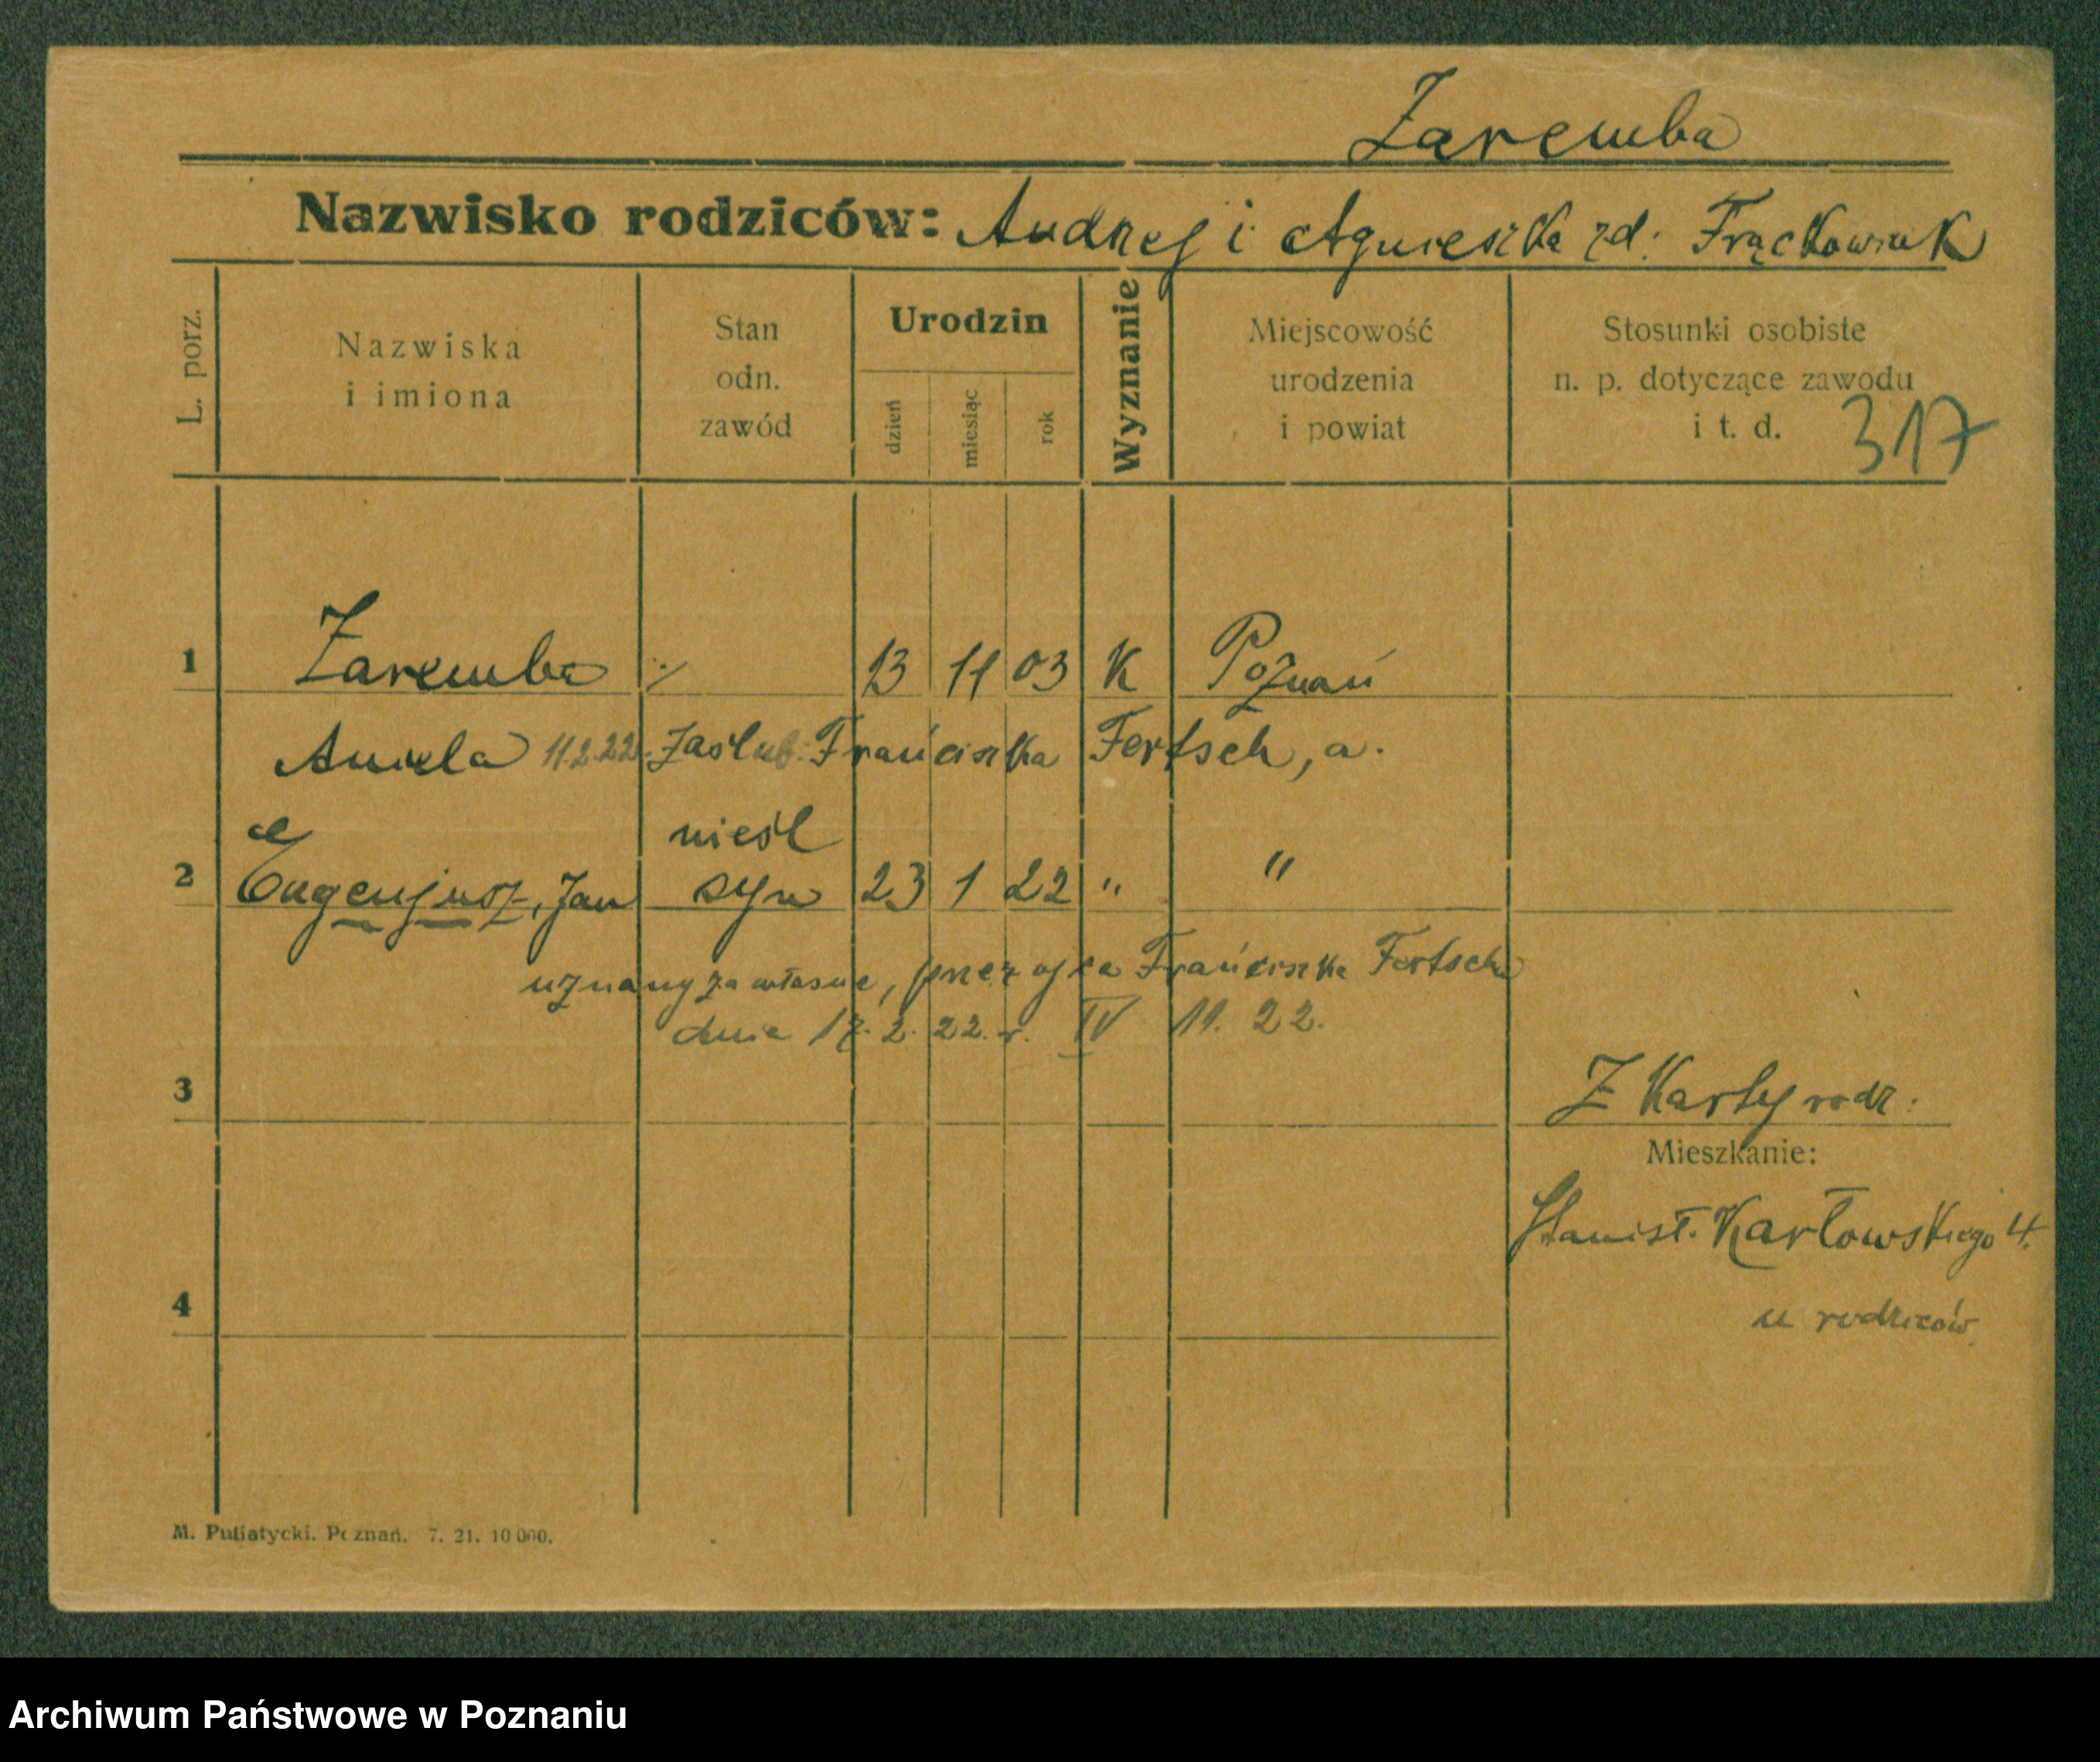 Zaremba
Nazwisko rodziców: Andrzej i Agnieszka zd. Frąckowiak
L. porz.
Nazwiska i imiona
Stan odn. zawód
Urodzin
dzień
miesiąc
rok
Wyznanie
Miejscowość urodzenia i powiat
Stosunki osobiste n. p. dotyczące zawodu i t. d.
317
1 Zaremba ./. 13 11 03 K Poznań
Aniela 11.2.22. zaślub. Franciszka Fertsch, a.
nieśl
2 Eugenjusz, Jan syn 23 1 22 " "
uznany za własne, przez ojca Franciszka Fertscha
dnia 17. 2. 22. r. IV 11. 22.
3 Z Karty rodz.
Mieszkanie:
Stanisł. Karłowskiego 4.
4 u rodziców
M. Putiatycki. Poznań. 7. 21. 10 000.
Archiwum Państwowe w Poznaniu